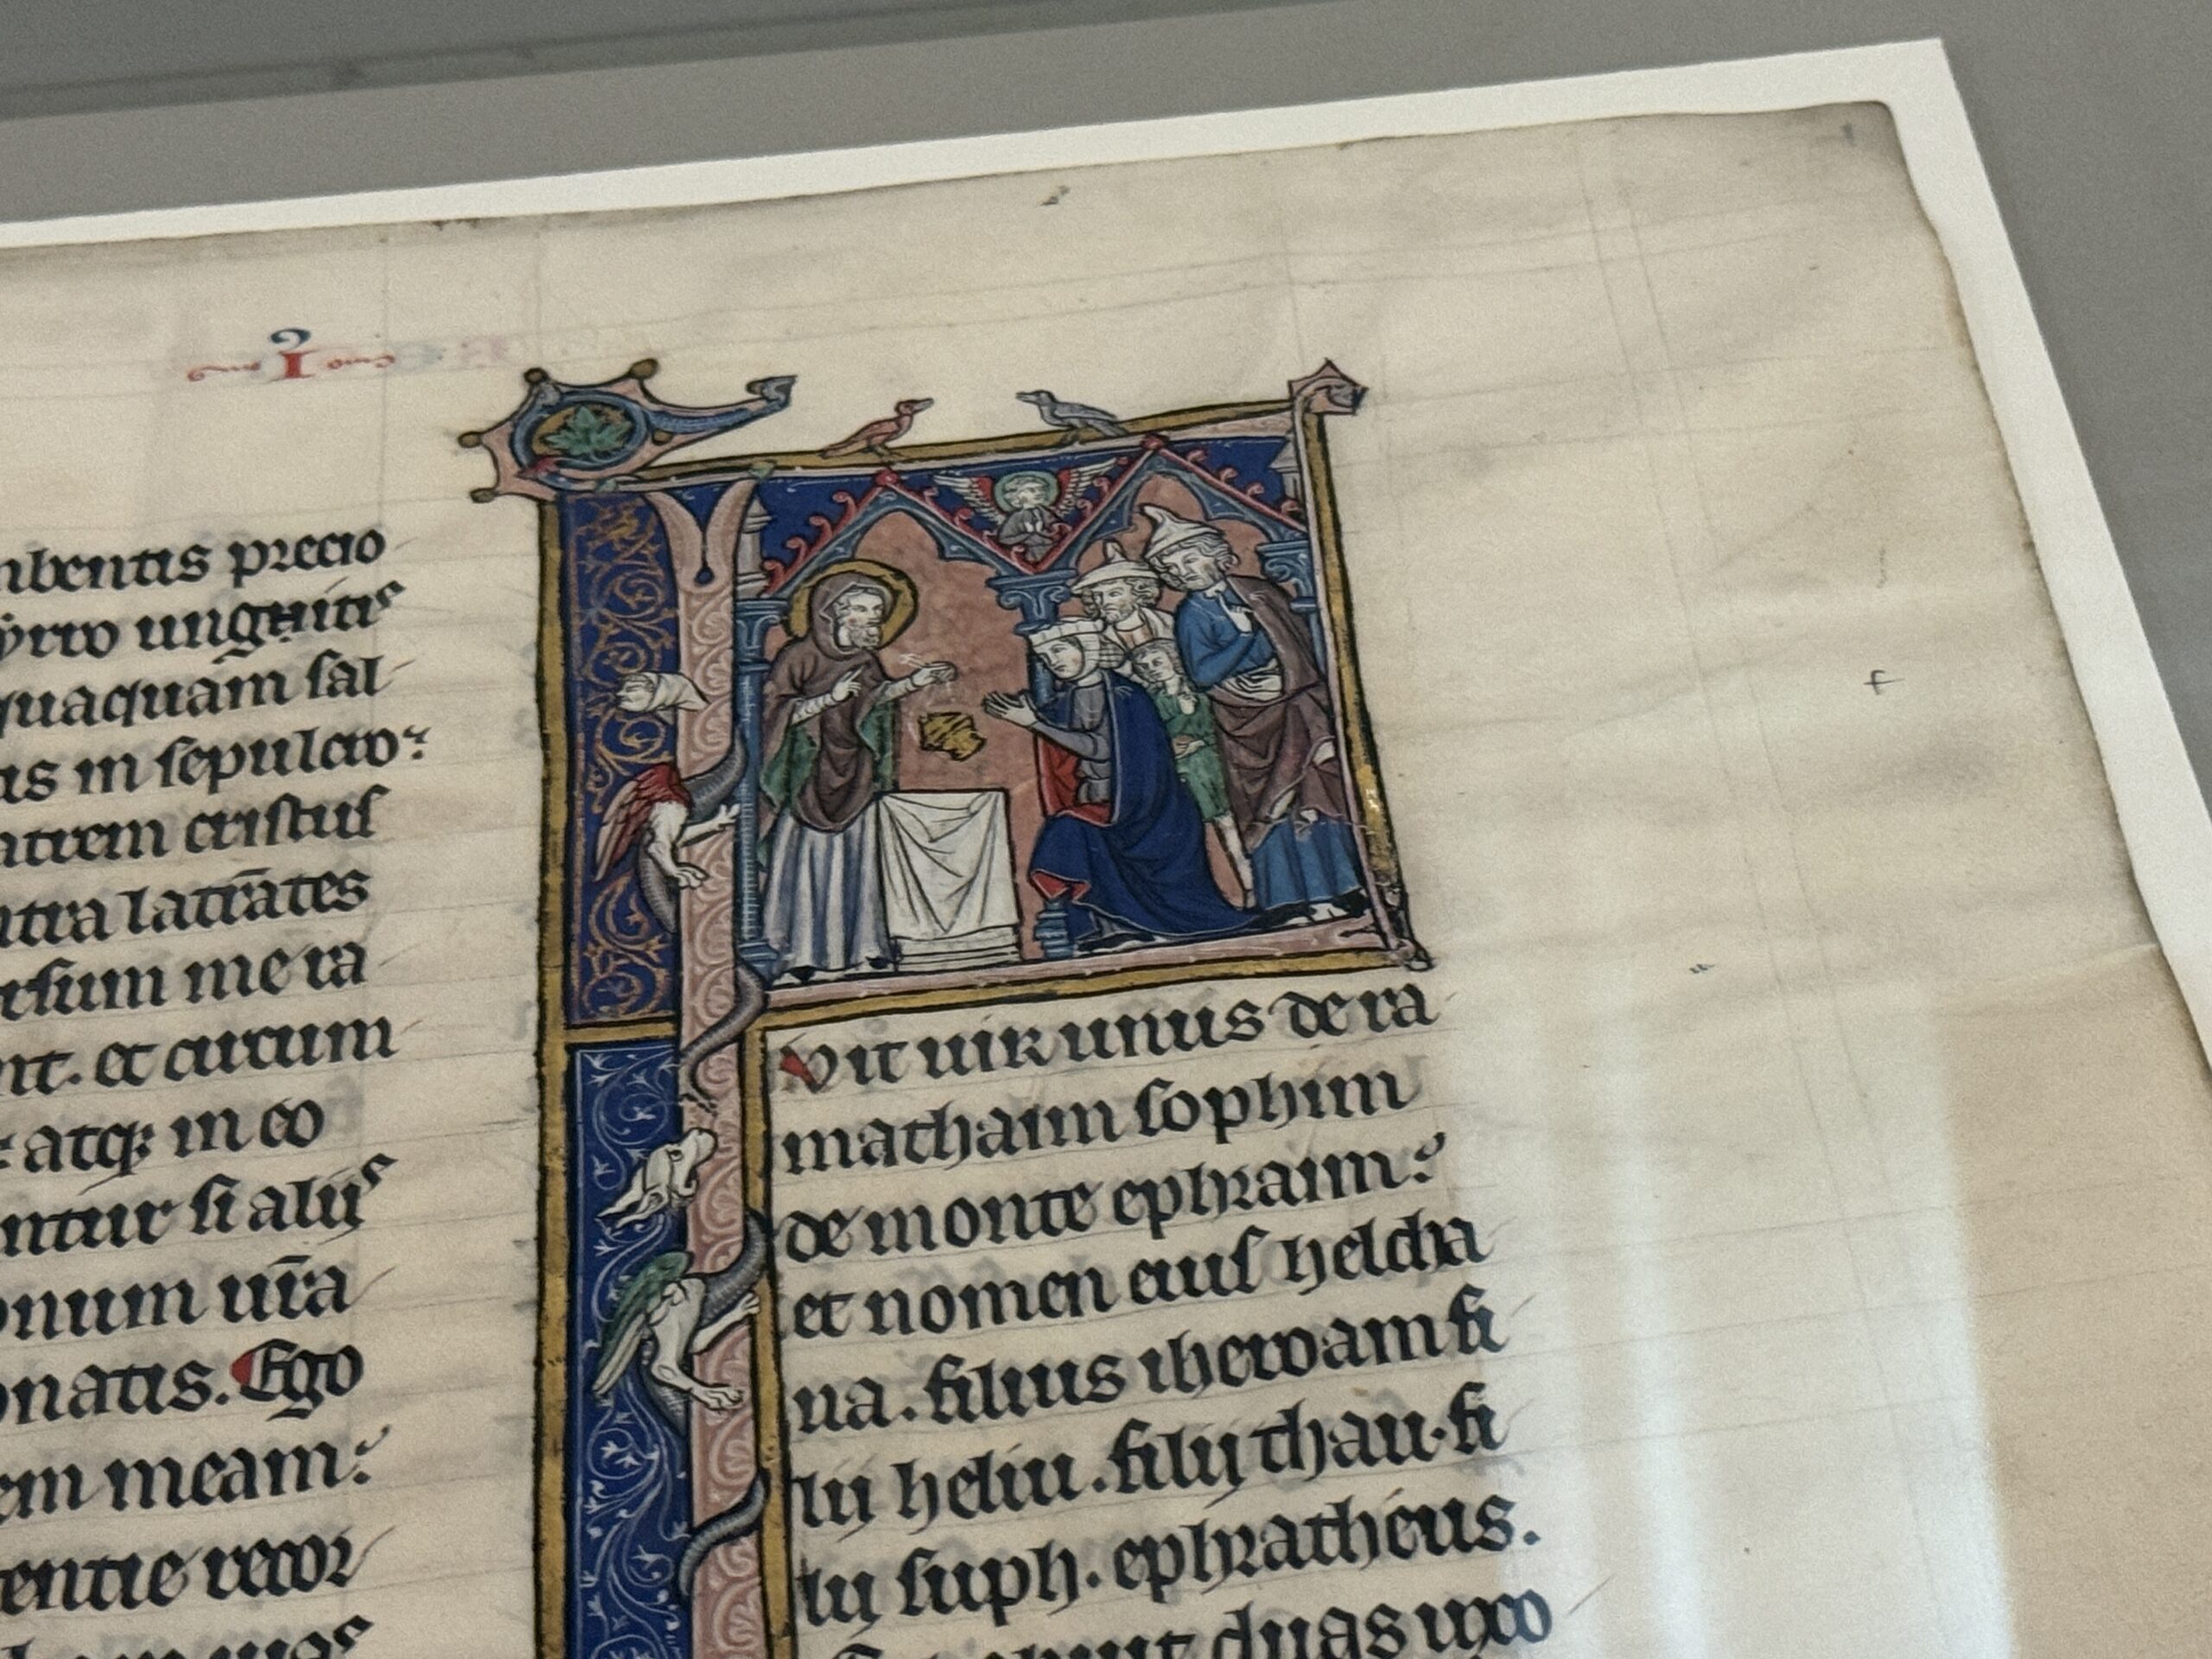 I
nbentis precio
yrro unguitis
quaquam sal
is in sepulcro
atrem cristus
ntra latrātes
rsum me ra
nt. et circum
atq; in eo
ntur si aliis
onum ur̄a
onatis. Ego
em meam
entie recor
vit uir unus de ra
mathaim sophim
de monte ephraim
et nomen eius helcha
na. filius iheroam fi
lii heliu. filii thau. fi
lii suph. ephratheus.
duas uxo